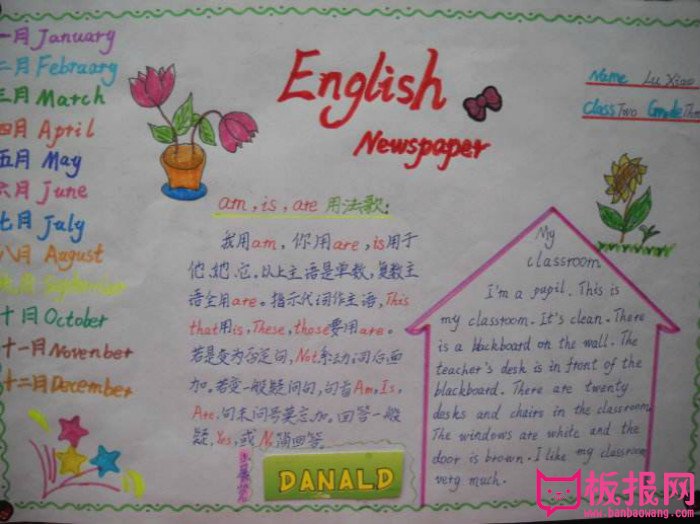 一月January
二月February
三月March
四月April
五月May
六月June
七月July
八月August
九月September
十月October
十一月Novenber
十二月December
English
Newspaper
Name Lu Xiao
Class Two Grade
am, is, are 用法歌:
我用am，你用are，is用于
他，她，它。以上主语是单数，复数主
语全用are。指示代词作主语，This
that用is，These，those要用are。
若是变为否定句，Not系动词后面
加。若变一般疑问句，句首Am，Is，
Are，句末问号莫忘加。回答一般
疑，Yes，或No 回答。
DANALD
My
classroom
I'm a pupil. This is
my classroom. It's clean. There
is a blackboard on the wall. The
teacher's desk is in front of the
blackboard. There are twenty
desks and chairs in the classroom
The windows are white and the
door is brown. I like my classroom
very much.
板报网
www.banbaowang.com